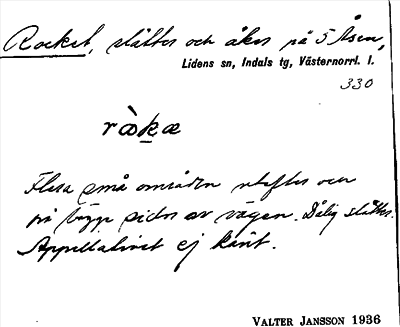 Rocket, slåtter och åker på 5 Åsen,
Lidens sn, Indals tg, Västernorrl. l.
330
ròk̲æ
Flera små områden utefter och
på bägge sidor av vägen. Dålig slåtter.
Appellativet ej känt.
VALTER JANSSON 1936